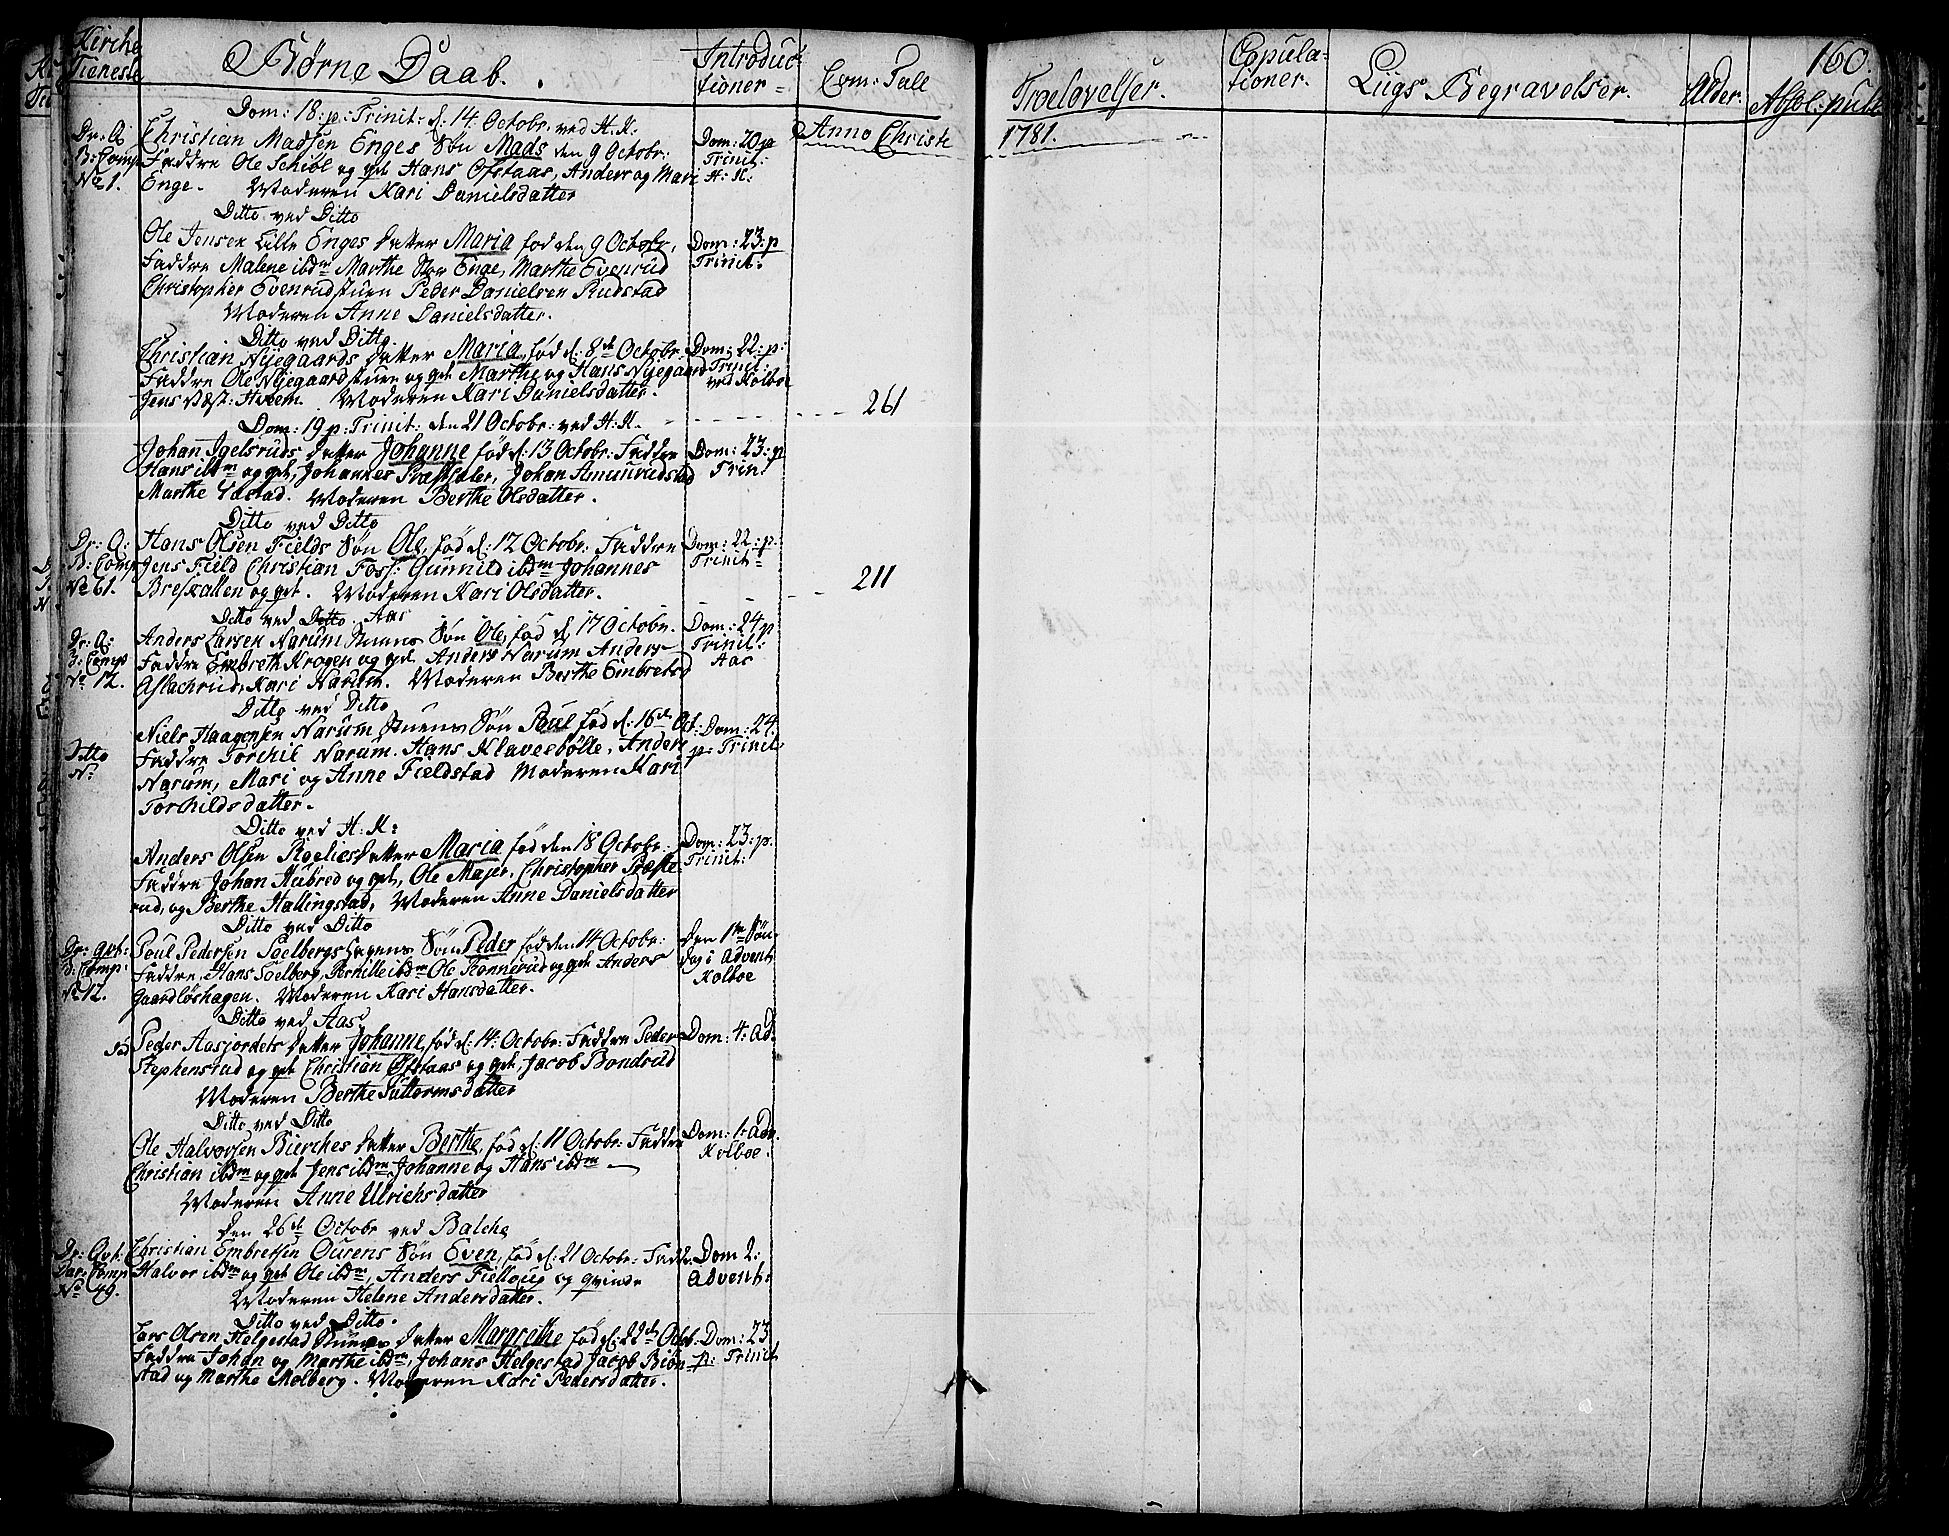 Kirche
Tieneste
Børne Daab.
Introduc-
tioner
Com: Tale
Troelovelser.
Copula-
tioner.
Liigs Begravelser.
Alder.
Absol: publ:
160.
Anno Christi
1781.
Dom: 18: p: Trinit: d: 14 Octobr: ved H: K:
Dr: A:
B: Comp
No 1.
Christian Madsen Enges Søn Mads den 9 Octobr:
Faddre Ole Schiøl og qvt Hans Ofstaas, Anders og Mari
Enge. Moderen Kari Danielsdatter
Dom: 20 p
Trinit:
H: K:
Ditto ved Ditto
Ole Jensen Lille Enges Datter Maria fød den 9 Octobr,
Faddre Malene ibdm Marthe Stor Enge, Marthe Evenrud
Christopher Evenrudstuen Peder Danielsen Rudstad
Moderen Anne Danielsdatter.
Dom: 23: p
Trinit:
Ditto ved Ditto.
Christian Nyegaards Datter Maria, fød d: 8de Octobr:
Faddre Ole Nyegaardstuen og qvt Marthe og Hans Nyegaard
Jens Væst: Hveem. Moderen Kari Danielsdatter.
Dom: 22: p:
Trinit:
ved Kolboe
261
Dom: 19 p: Trinit: den 21 Octobr: ved H: K.
Johan Igelsruds Datter Johanne fød d: 13 Octobr: Faddre
Hans ibdm og qvt, Johannes Præstsæter, Johan Amunrudstad
Marthe Sæstad. Moderen Berthe Olsdatter.
Dom: 23: p
Trin:
Ditto ved Ditto
Dr: A:
B: Comp
No 61.
Hans Olsen Fields Søn Ole, fød d: 12 Octobr: Faddre
Jens Field Christian Foss: Gunnild ibdm Johannes
Breskallen og qvt. Moderen Kari Olsdatter.
Dom: 22: p:
Trinit:
211
Ditto ved Ditto Aas
Dr: A:
B: Comp
No 12.
Anders Larsen Narum Stuens Søn Ole, fød d, 17 Octobr.
Faddre Embreth Krogen og qvt, Anders Narum Anders
Aslachrud, Kari Narum. Moderen Berthe Embretsd
Dom: 24 p
Trinit:
Aas
Ditto ved Ditto
Ditto
No
Niels Haagensen Narum Stuens Søn Poul fød d: 16de Oct:
Faddre Torchil Narum. Hans Klaveebølle, Anders
Narum, Mari og Anne Fieldstad Moderen Kari
Torchildsdatter.
Dom: 24.
p: Trinit:
Ditto ved H: K:
Anders Olsen Rgelies Datter Maria fød den 18 Octobr:
Faddre Johan Aubred og qvt, Ole Majer, Christopher Præste-
rud, og Berthe Hallingstad, Moderen Anne Danielsdatter
Dom: 23: p.
Trinit:
Ditto ved Ditto
Dr: qvt:
B: Comp:
No 12.
Poul Pedersen Soelbergshagens Søn Peder fød den 14 Octobr:
Faddre, Hans Soelberg, Pernille ibdm Ole Rønnerud og qvt Anders
Gaardløshagen. Moderen Kari Hansdatter.
Den 1te Søn-
dag i Advent
Kolboe
Ditto ved Aas
Peder Aasjordets Datter Johanne, fød d: 14: Octobr: Faddre Peder
Stephenstad og qvt Christian Ofstaas og qvt, Jacob Bondrud
Moderen Berthe Guttormsdatter
Dom: 4: Ad.
Ditto ved Ditto
Ole Halvorsen Bierches Datter Berthe, fød d: 11 Octobr: Faddre
Christian ibdm og qvt Jens ibdm, Johanne og Hans ibdm
Moderen Anne Ulrichsdatter
Dom: 1: Adv.
Kolboe.
Den 26de Octobr ved Balche
Dr: Qvt:
Comp
No 49.
Christian Embretsen Ourens Søn Even, fød d: 21 Octobr: Faddre
Halvor ibdm og qvt Ole ibdm, Anders Fielloug og qvinde
Moderen Helene Andersdatter.
Dom 2:
Advent:
Ditto ved Ditto.
Lars Olsen Helgestad Stuens Datter Margrethe fød d: 22de Octob:
Faddre Johan og Marthe ibdm, Johans Helgestad Jacob Biøn
stad og Marthe Molberg. Moderen Kari Pedersdatter.
Dom: 23
p: Trinit